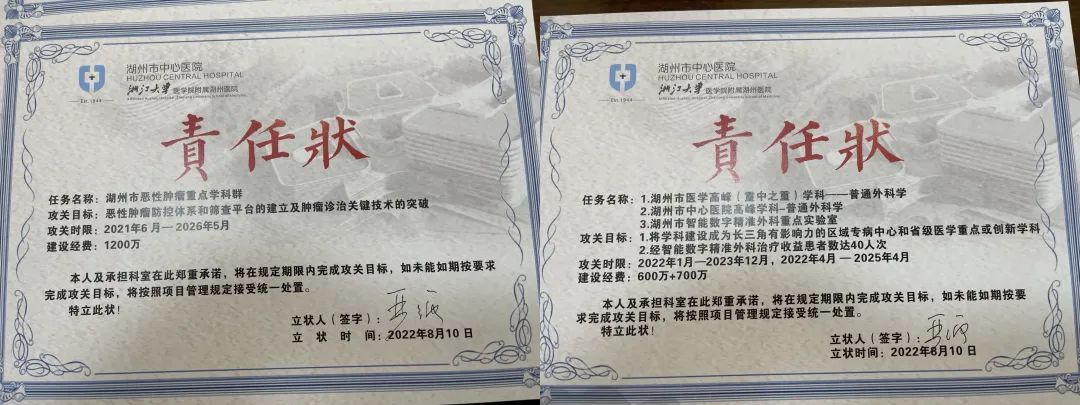 湖州市中心医院
HUZHOU CENTRAL HOSPITAL
浙江大学医学院附属湖州医院
Est.1944
責任狀
任务名称：湖州市恶性肿瘤重点学科群
攻关目标：恶性肿瘤防控体系和筛查平台的建立及肿瘤诊治关键技术的突破
攻关时限：2021年6月—2026年5月
建设经费：1200万
本人及承担科室在此郑重承诺，将在规定期限内完成攻关目标，如未能如期按要求
完成攻关目标，将按照项目管理规定接受统一处置。
特立此状！
立状人（签字）：
立 状 时 间：2022年8月10日
湖州市中心医院
HUZHOU CENTRAL HOSPITAL
浙江大学医学院附属湖州医院
Est.1944
責任狀
任务名称：1.湖州市医学高峰（重中之重）学科——普通外科学
2.湖州市中心医院高峰学科-普通外科学
3.湖州市智能数字精准外科重点实验室
攻关目标：1.将学科建设成为长三角有影响力的区域专病中心和省级医学重点或创新学科
2.经智能数字精准外科治疗收益患者数达40人次
攻关时限：2022年1月—2023年12月，2022年4月—2025年4月
建设经费：600万+700万
本人及承担科室在此郑重承诺，将在规定期限内完成攻关目标，如未能如期按要
求完成攻关目标，将按照项目管理规定接受统一处置。
特立此状！
立状人（签字）：
立状时间：2022年8月10日